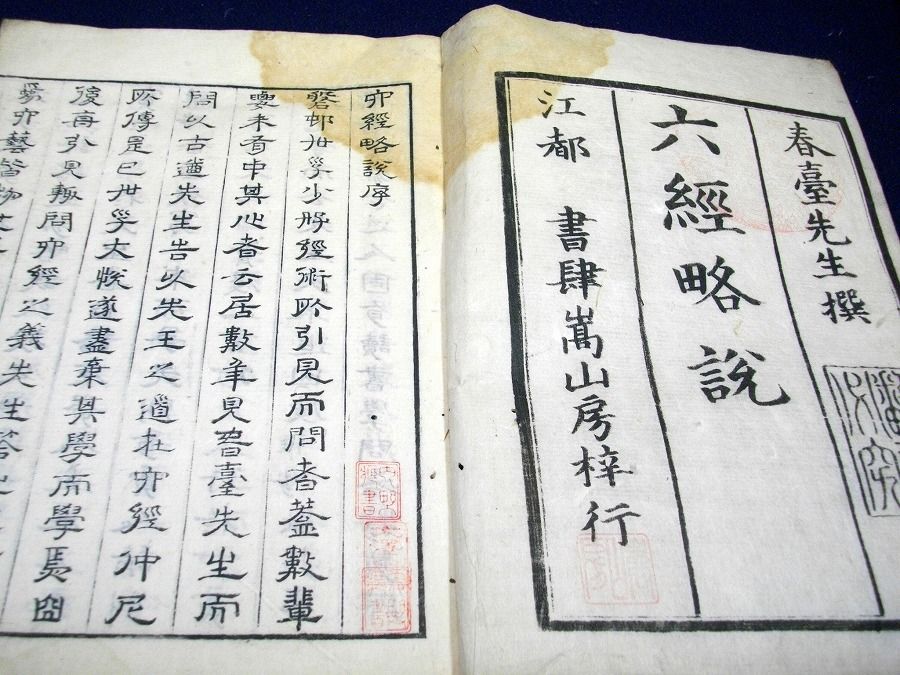 春臺先生撰
六經略說
江都 書肆嵩山房梓行
六經略說序
邨世子少好經術所引見而問者蓋數輩
要未有中其心者云居數年見春臺先生而
問以古道先生告以先王之道在六經仲尼
所傳是已世子大悅遂盡棄其學而學焉因
後再引見輒問六經之義先生答
六藝皆物